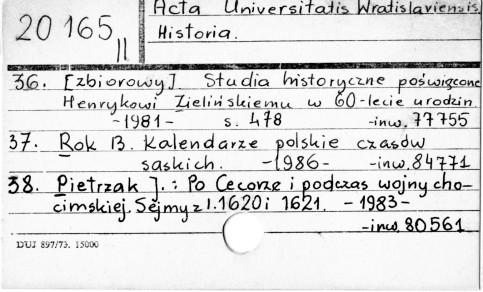 Acta Universitatis Wratislaviensis.
20 165 II
Historia.
36. [zbiorowy]. Studia historyczne poświęcone
Henrykowi Zielińskiemu w 60-lecie urodzin
-1981- s. 478 -inw. 77755
37. Rok B. Kalendarze polskie czasów
saskich. -1986- -inw. 84771
38. Pietrzak J.: Po Cecorze i podczas wojny cho-
cimskiej. Sejmy z l. 1620 i 1621. -1983-
-inw. 80561
DUJ 897/73. 15000